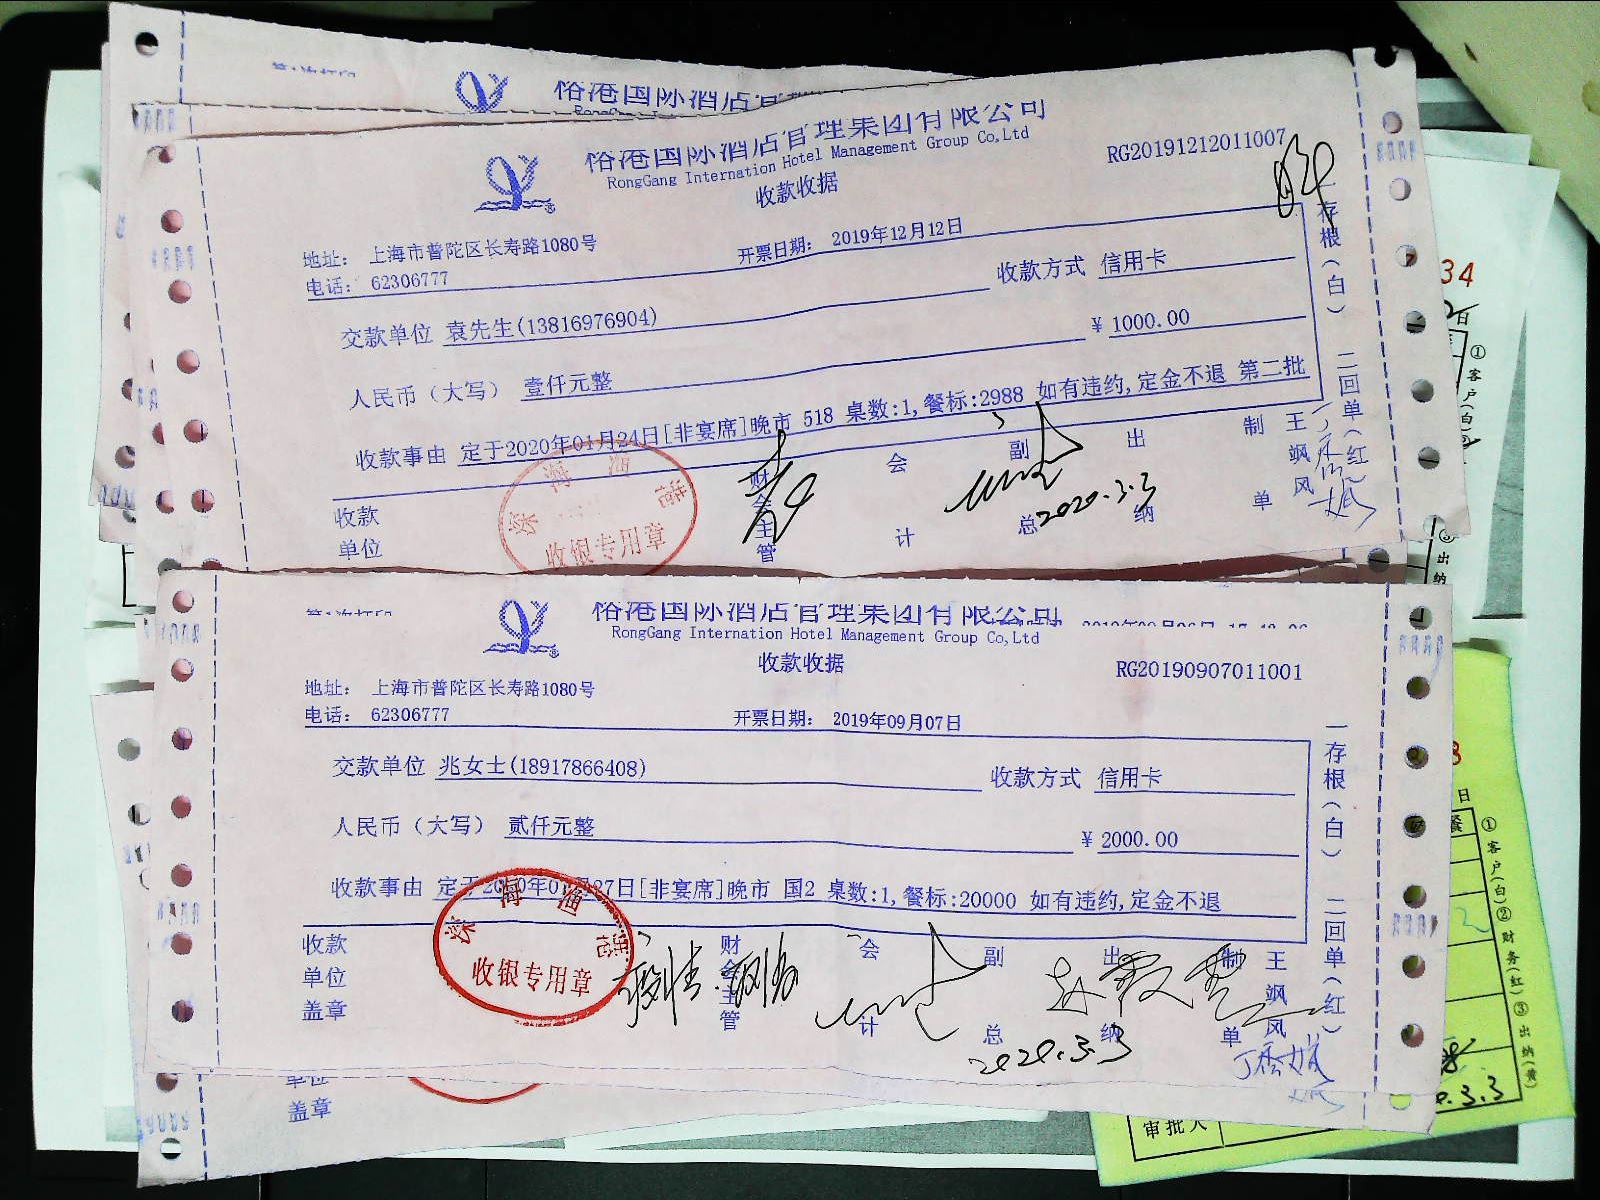 裕港国际酒店管
裕港国际酒店管理集团有限公司
RongGang Internation Hotel Management Group Co,Ltd
收款收据
RG20191212011007
地址： 上海市普陀区长寿路1080号
电话： 62306777
开票日期： 2019年12月12日
收款方式 信用卡
交款单位 袁先生(13816976904)
¥ 1000.00
人民币（大写） 壹仟元整
收款事由 定于2020年01月24日[非宴席]晚市 518 桌数:1,餐标:2988 如有违约,定金不退 第二批
一存根(白) 二回单(红)
收款
单位
深海渔港
收银专用章
财会主管
会计
副总
出纳
制单
王飒风
2020.3.3
裕港国际酒店管理集团有限公司
RongGang Internation Hotel Management Group Co,Ltd
收款收据
RG20190907011001
地址： 上海市普陀区长寿路1080号
电话： 62306777
开票日期： 2019年09月07日
交款单位 兆女士(18917866408)
收款方式 信用卡
人民币（大写） 贰仟元整
¥ 2000.00
收款事由 定于2020年01月27日[非宴席]晚市 国2 桌数:1,餐标:20000 如有违约,定金不退
一存根(白) 二回单(红)
收款
单位
盖章
深海渔港
收银专用章
财会主管
会计
副总
出纳
制单
王飒风
2020.3.3
单位
盖章
34
日
①客户(白)
③出纳
日
①客户(白)②财务(红)③出纳(黄)
.3.3
审批人